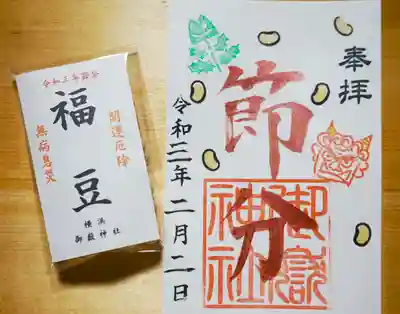 令和三年節分
開運厄除
福豆
無病息災
横浜
御嶽神社
奉拝
節分
御嶽
神社
令和三年二月二日